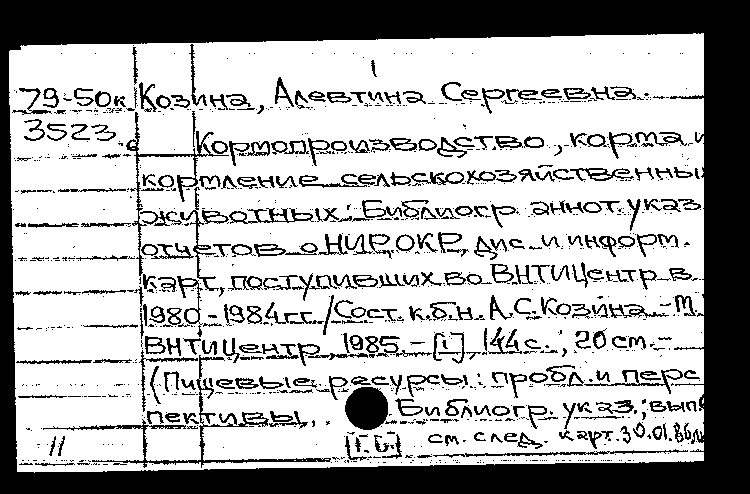 79-50к Козина, Алевтина Сергеевна.
3523 Кормопроизводство, корма и
кормление сельскохозяйственных
животных: Библиогр. аннот. указ.
отчетов о НИР, ОКР, дис. и информ.
карт, поступивших во ВНТИЦентр в
1980-1984 гг. / Сост. к.б.н. А.С. Козина. - М.:
ВНТИЦентр, 1985. - [i], 144 с.; 20 см. -
(Пищевые ресурсы: пробл. и перс
пективы. Библиогр. указ.; вып
11 см. след. карт. 30.01.86